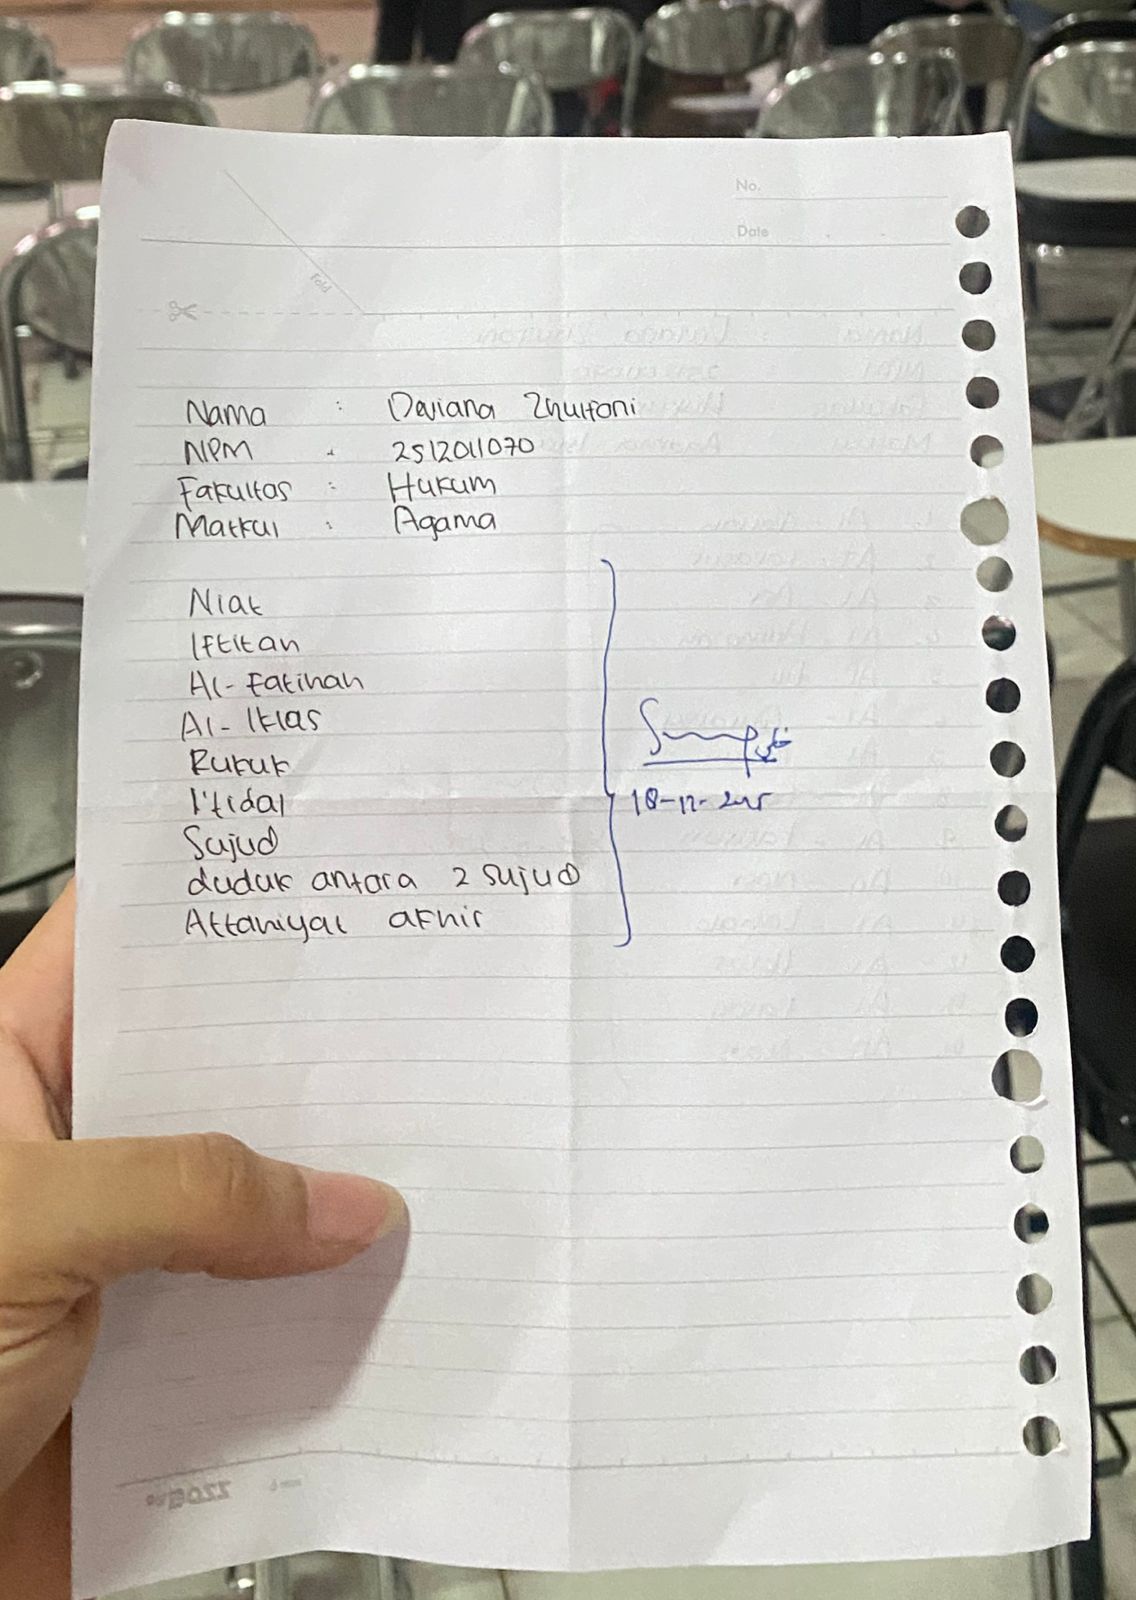 No.
Date
Fold
Nama : Daviana Zhulfani
NPM : 2512011070
Fakultas : Hukum
Matkul : Agama
Niat
Iftitah
Al-Fatihah
Al-Iklas
Rukuk
I'tidal
Sujud
duduk antara 2 Sujud
Attahiyat akhir
18-12-2025